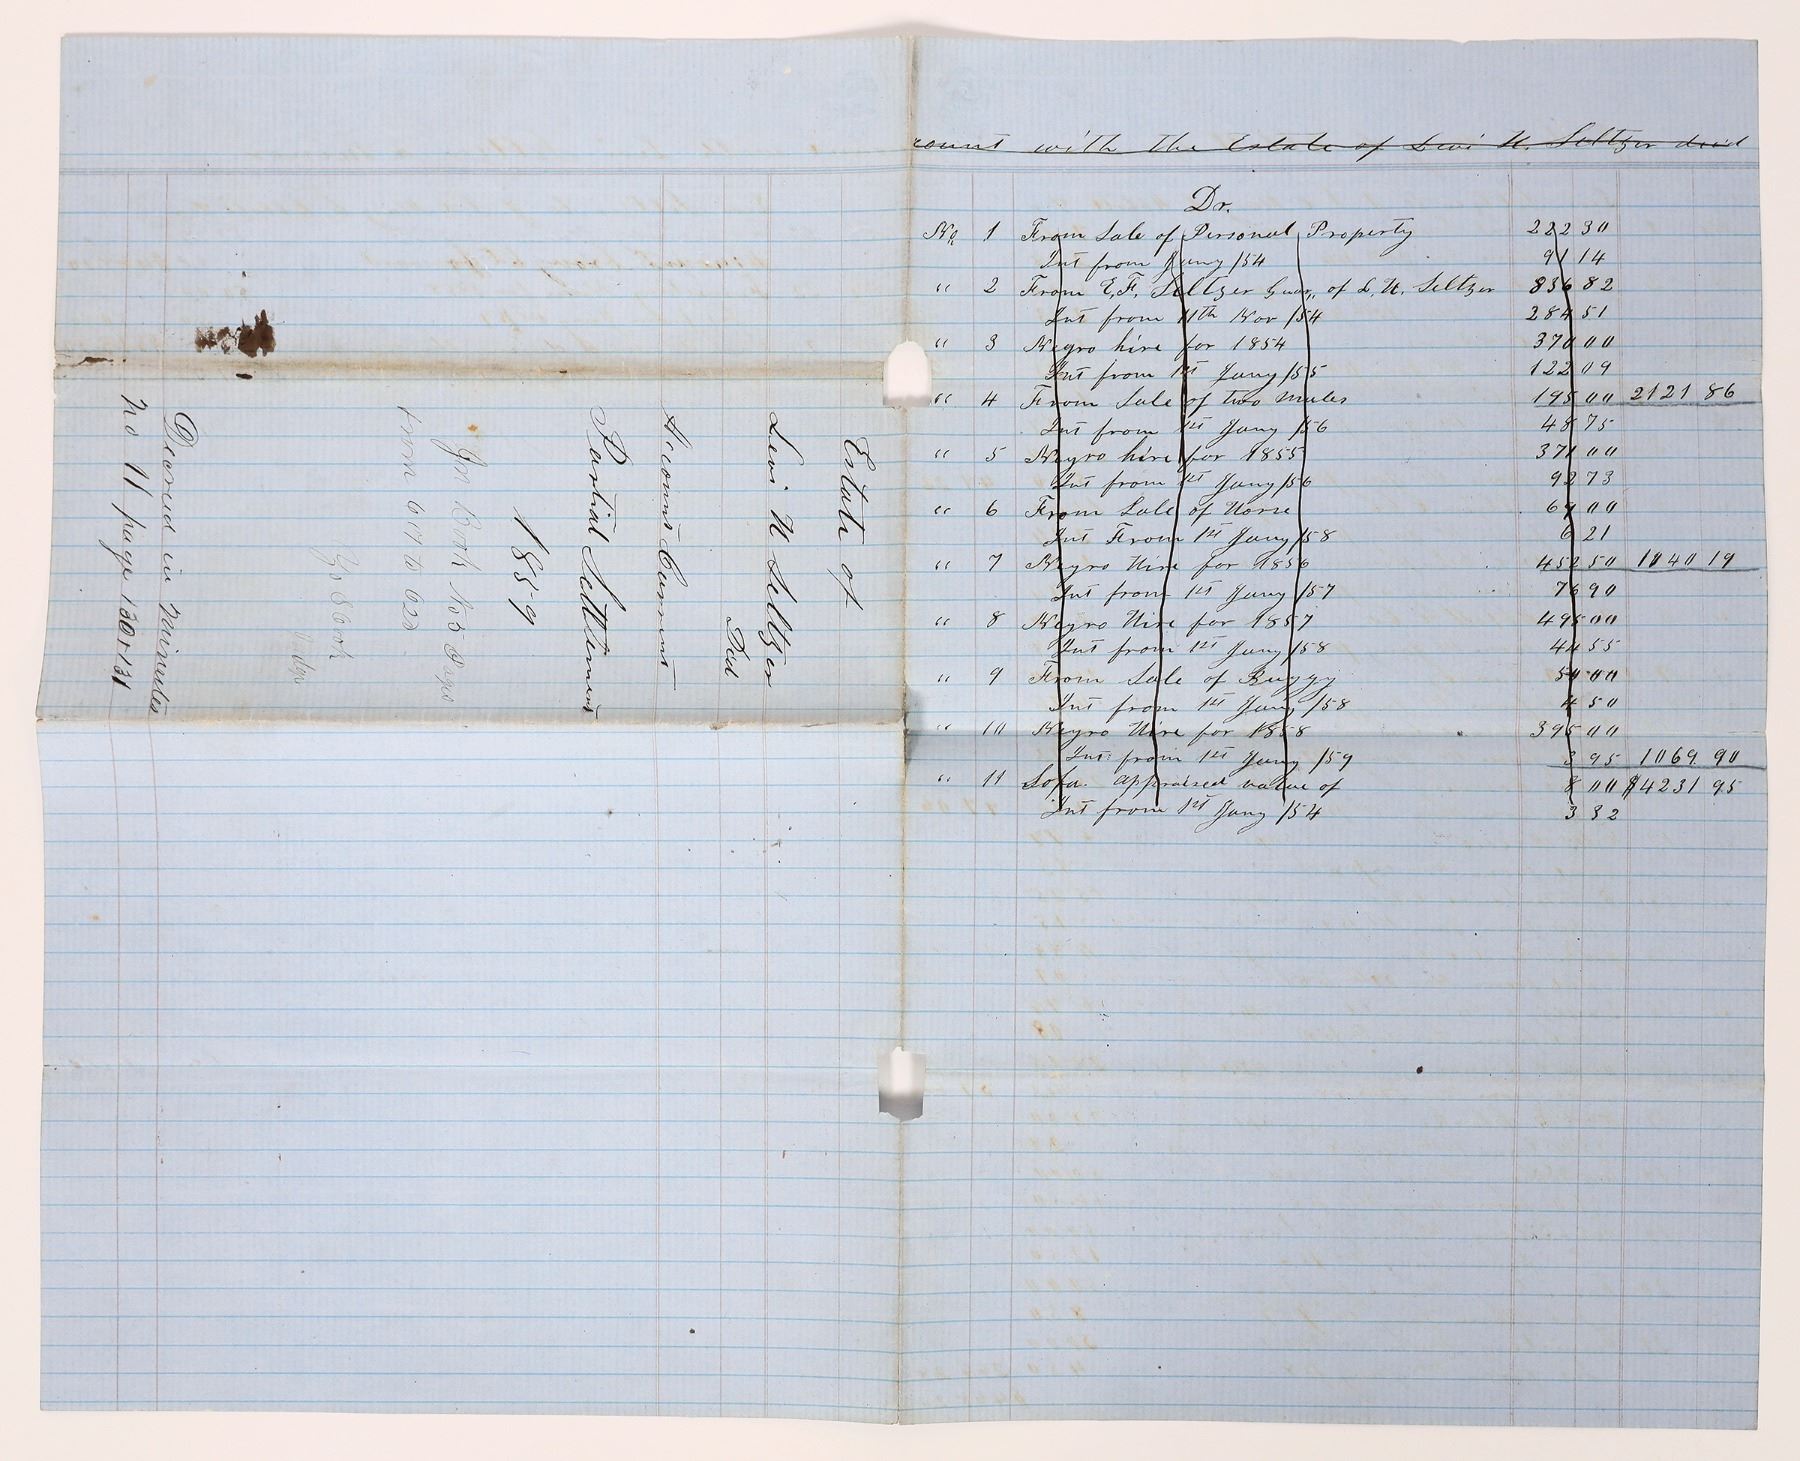 count with the Estate of Levi H. Seltzer dec'd
Dr.
No. 1 From Sale of Personal Property 222 30
Int from Jany /54 91 14
" 2 From E. F. Seltzer Guar. of L. H. Seltzer 836 82
Int from 11th Nov /54 284 51
" 3 Negro hire for 1854 370 00
Int from 1st Jany /55 122 09
" 4 From Sale of two mules 195 00 2121 86
Int from 1st Jany /56 48 75
" 5 Negro hire for 1855 371 00
Int from 1st Jany /56 92 73
" 6 From Sale of Horse 69 00
Int From 1st Jany /58 6 21
" 7 Negro Hire for 1856 452 50 1040 19
Int from 1st Jany /57 76 90
" 8 Negro Hire for 1857 495 00
Int from 1st Jany /58 44 55
" 9 From Sale of Buggy 50 00
Int from 1st Jany /58 4 50
" 10 Negro Hire for 1858 395 00
Int: from 1st Jany /59 3 95 1069 90
" 11 Sofa. appraised value of 8 00 $4231 95
Int from 1st Jany /54 3 32
Estate of
Levi H Seltzer
Decd
Account Current
Partial Settlement
1859
In Book No 5 Pages
from 617 to 620
Decreed in Minutes
No 11 page 130 & 131